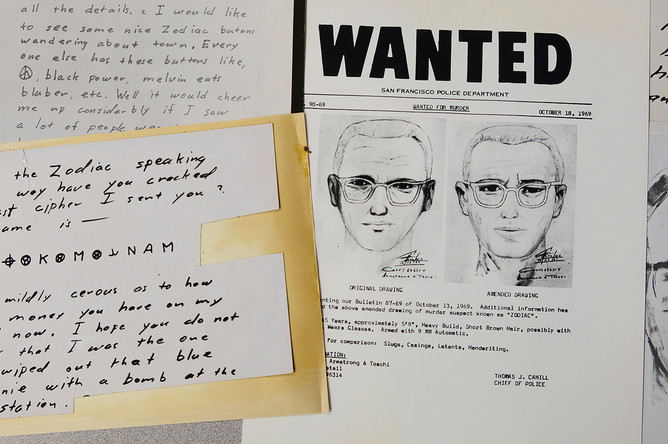 all the details. I would like
to see some nice Zodiac butons
wandering about town. Every
one else has these buttons like,
☮, black power, melvin eats
bluber, etc. Well it would cheer
me up considerbly if I saw
a lot of people
the Zodiac speaking
way have you cracked
cipher I sent you?
ame is —
K M NAM
mildly cerous as to how
money you have on my
now. I hope you do not
that I was the one
wiped out that blue
nie with a bomb at the
station.
WANTED
SAN FRANCISCO POLICE DEPARTMENT
90-69 WANTED FOR MURDER OCTOBER 18, 1969
ORIGINAL DRAWING AMENDED DRAWING
nting our Bulletin 87-69 of October 13, 1969. Additional information has
the above amended drawing of murder suspect known as "ZODIAC".
5 Years, approximately 5'8", Heavy Build, Short Brown Hair, possibly with
Wears Glasses. Armed with 9 MM Automatic.
for comparison: Slugs, Casings, Latents, Handwriting.
ATION:
Armstrong & Toschi
tail
96314
THOMAS J. CAHILL
CHIEF OF POLICE